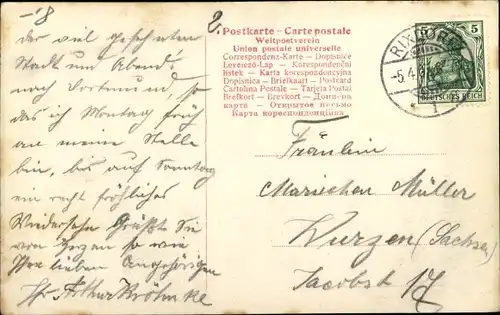 -18
der viel gesehenen
Stadt und Abends
nach Dortmund, so
das ich Montag früh
an meine Stelle
bin, bis auf Sonntag
ein recht fröhliches
Wiedersehn Grüßt Sie
von Herzen so wie
Ihre lieben Angehörigen
Ihr Arthur
2.
Postkarte – Carte postale
Weltpostverein
Union postale universelle
Correspondenz-Karte – Dopisnice
Levelező-Lap – Korespondenční
lístek – Karta korespondencyjna
Dopisnica – Briefkaart – Postcard
Cartolina Postale – Tarjeta Postal
Brefkort – Brevkort – Дописна
карта – Открытое письмо
Карта кореспонденційна
RIXDORF
-5.4.
1
5
DEUTSCHES REICH
Fräulein
Mariechen Müller
Wurzen (Sachsen)
Jacobst 17